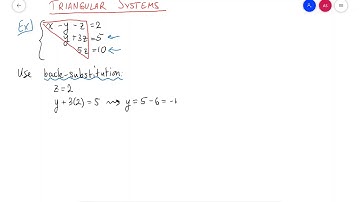 TRIANGULAR SYSTEMS
Ex) x - y - z = 2
y + 3z = 5
5z = 10
Use back-substitution:
z = 2
y + 3(2) = 5 ⇝ y = 5 - 6 = -1